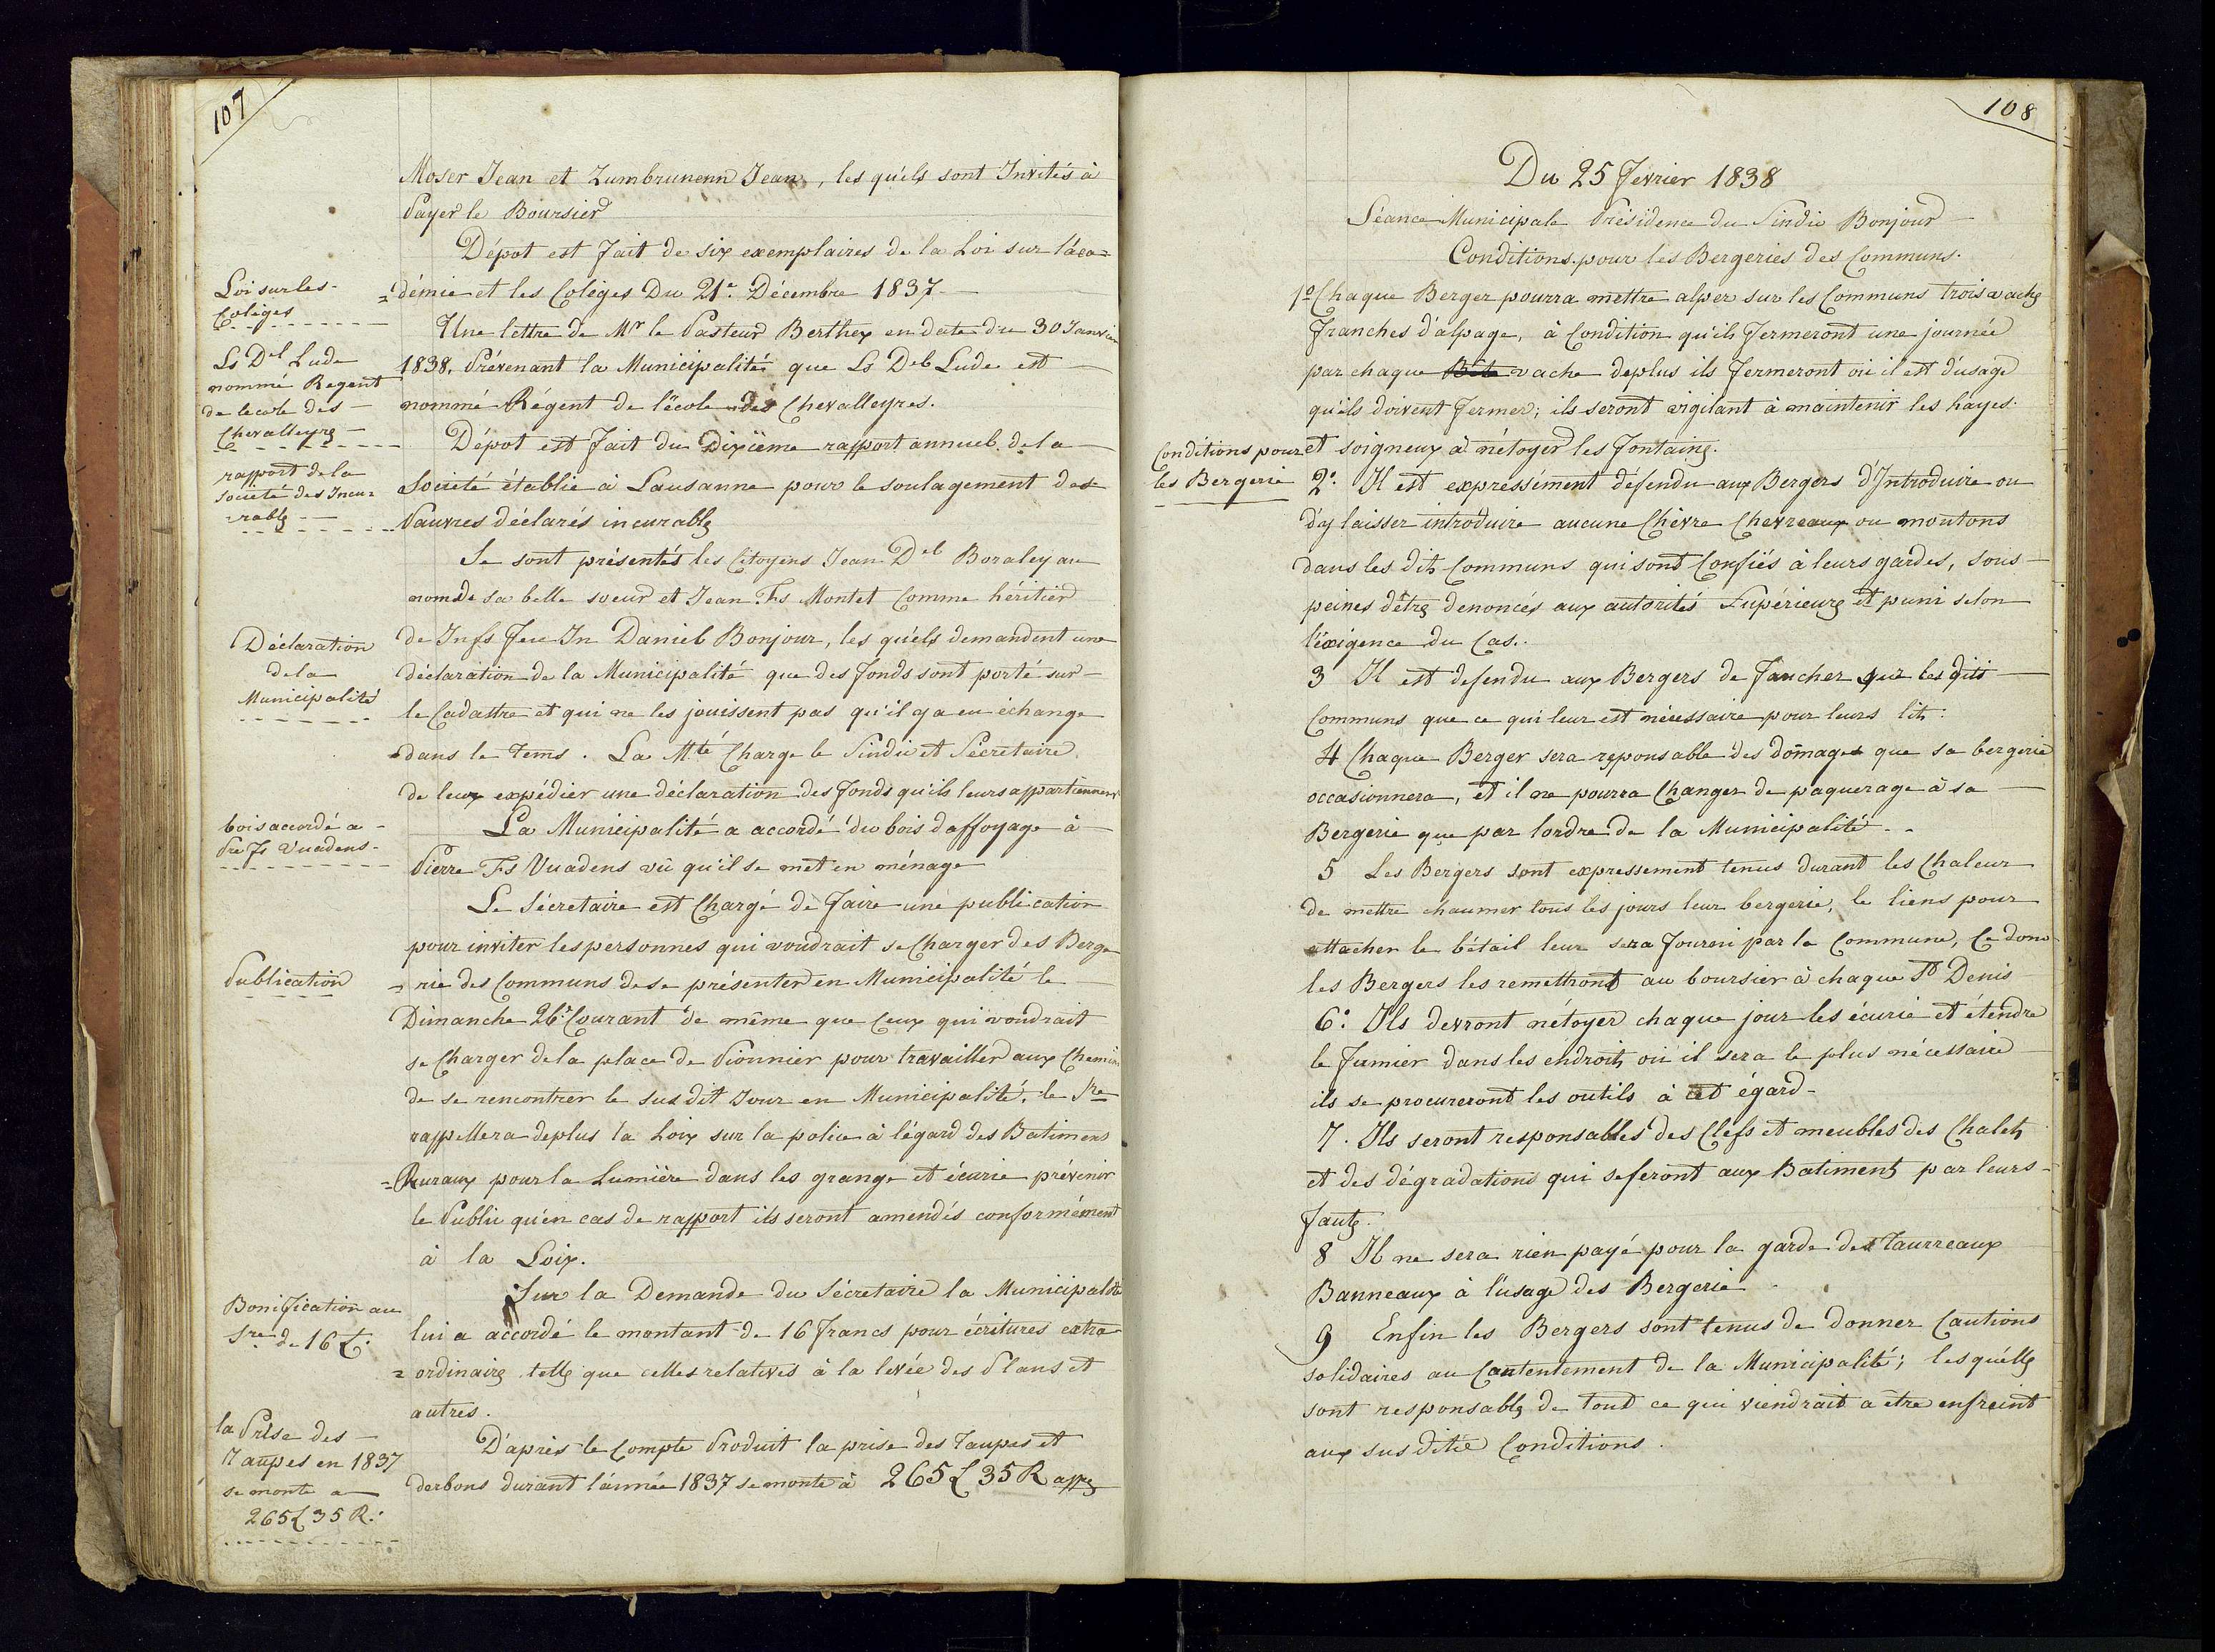 107
Moser Jean et Zumbrunenn Jean, les quéls sont Invités à
Payer le Boursier
Dépot est fait de six exemplaires de la Loi sur láca=
Loi sur les
Coléges
=démie et les Coléges Du 21e. Décembre 1837
Une lettre de Mr le Pasteur Berthex en date du 30 Janvier
Ls Del Lude
nommé Regent
de lecole des
Chevalleyres
1838, Prévenant la Municipalité que Ls Del Lude est
nommé Régent de l'école des Chevalleyres.
Dépot est fait du Dixième rapport annuel de la
rapport de la
société des Incu=
=rables
Société établie à Lausanne pour le soulagement des
Pauvres déclarés incurables
Se sont présentés les Citoyens Jean Del Boraley au
nom de sa belle soeur et Jean Fs Montet Comme héritier
Déclaration
de la
Municipalité
de Jn fs feu Jn Daniel Bonjour, les quéls demandent une
déclaration de la Municipalité que des fonds sont porté sur
le Cadastre et qui ne les jouissent pas qu'il y a eu échange
dans le tems. La Mté Charge le Sindic et Sécretaire
de leur expédier une déclaration des fonds qu'ils leurs appartiennent
bois accordé a
Pre Fs Vuadens
La Municipalité a accordé du bois daffoyage à
Pierre Fs Vuadens vû qu'il se met en ménage
Le Sécretaire est Chargé de faire une publication
pour inviter les personnes qui voudrait se Charger des Berge
Publication
=rie des Communs de se présenter en Municipalité le
Dimanche 26e. Courant de même que Ceux qui voudrait
se Charger de la place de Pionnier pour travailler aux Chemins
de se rencontrer le susdit Jour en Municipalité, le Sre
rappellera deplus la Loix sur la police à légard des Batimens
=Ruraux pour la Lumière dans les grange et écurie prévenir
le Public qu'en cas de rapport ils seront amendés conformément
à la Loix.
Sur la Demande du Sécretaire la Municipalité
Bonification au
Sre de 16 £.
lui a accordé le montant de 16 francs pour écritures extra
=ordinaires telles que celles relatives à la levée des Plans et
autres.
la Prise des
Taupes en 1837
se monte a
265£ 35 R.
D'après le Compte Produit la prise des Taupes et
derbons durant l'année 1837 se monte à 265£ 35 R
108
Du 25 Février 1838
Séance Municipale Présidence du Sindic Bonjour
Conditions pour les Bergeries des Communs.
1o Chaque Berger pourra mettre alper sur les Communs trois vaches
franches d'alpage, à Condition qu'ils fermeront une journée
par chaque Bête vache deplus ils fermeront où il est d'usage
qu'ils doivent fermer; ils seront vigilant à maintenir les hayes
Conditions pour
les Bergerie
et soigneux à nétoyer les fontaines.
2. Il est expressément défendu aux Bergers d'Introduire ou
d'y laisser introduire aucune Chèvre Chevreaux ou moutons
dans les dits Communs qui sont Confiés à leurs gardes, sous
peines d'êtres denoncés aux autorités Supérieures et puni selon
l'éxigence du Cas.
3 Il est defendu aux Bergers de faucher sur les dits
Communs que ce qui leur est nécessaire pour leurs lits.
4 Chaque Berger sera reponsable des domages que sa bergerie
occasionnera, et il ne pourra Changer de paquerage à sa
Bergerie que par lordre de la Municipalité.
5 Les Bergers sont expressement tenus durant les Chaleur
de mettre chaumer tous les jours leur bergerie, le liens pour
attacher le bétail leur sera fourni par la Commune, Ce donc
les Bergers les remettront au boursier à chaque St Denis
6. Ils devront nétoyer chaque jour les écurie et étendre
le fumier dans les endroits où il sera le plus nécessaire
ils se procureront les outils à cet égard
7. Ils seront responsables des Clefs et meubles des Chalets
et des dégradations qui se feront aux Batiments par leurs
fautes.
8 Il ne sera rien payé pour la garde des Taurreaux
Banneaux à l'usage des Bergerie
9 Enfin les Bergers sont tenus de donner Cautions
solidaires au Contentement de la Municipalité; lesquélles
sont responsables de tout ce qui viendrait a être enfreint
aux sus dite Conditions.